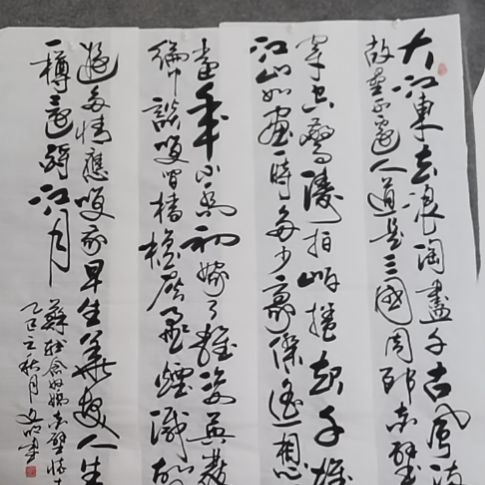 大江東去浪淘盡千古風流
故壘西邊人道是三國周郎赤壁
穿空驚濤拍岸捲起千堆
江山如畫一時多少豪傑遙想
當年小喬初嫁了雄姿英發
綸巾談笑間檣櫓灰飛煙滅故
遊多情應笑我早生華髮人生
一樽還酹江月
蘇軾念奴嬌赤壁懷古
乙巳立秋月